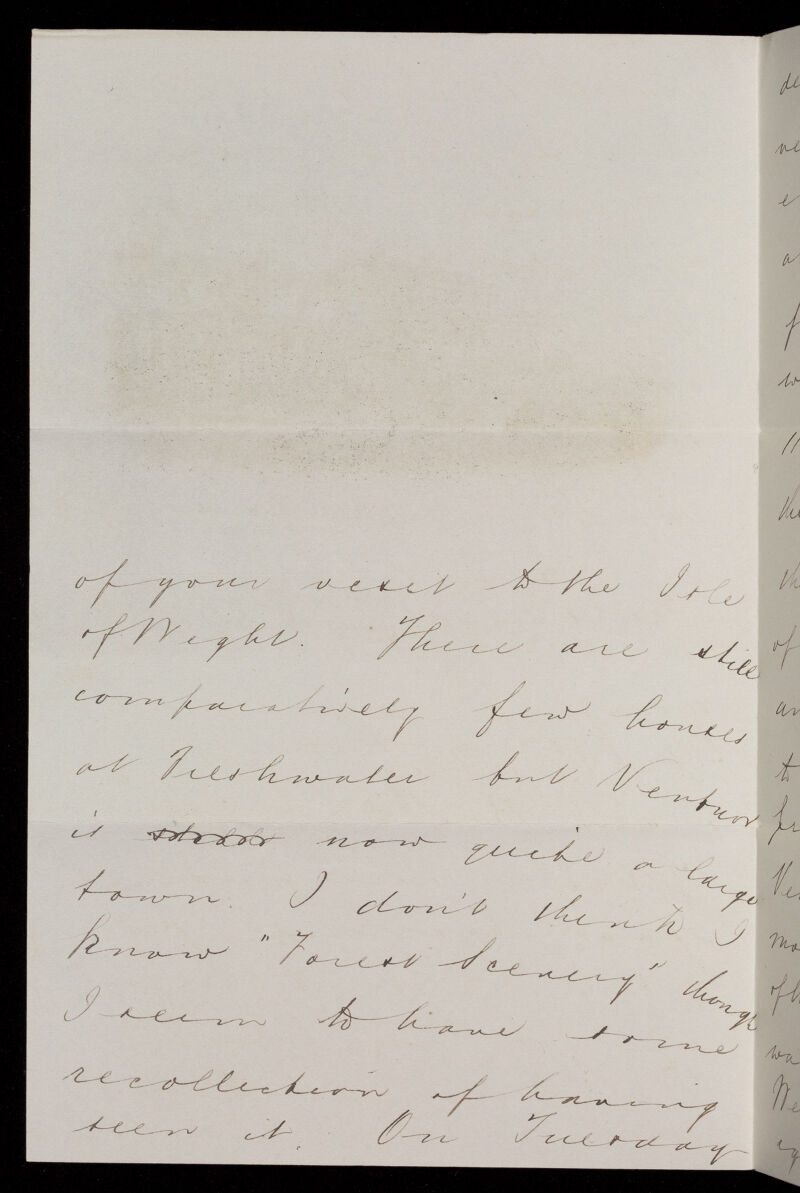 of your visit to the Isle
of Wight. There are still
comparatively few houses
at Freshwater but Ventnor
is now quite a large
town. I don't think I
know "Forest Scenery" though
I seem to have some
recollection of having
seen it. On Tuesday